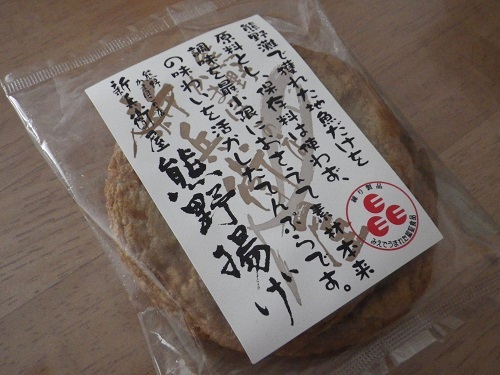 熊野灘で獲れた地魚だけを
原料とし、保存料は使わず、
調味を最小限におさえて素材本来
の味わいを活かしたてんぷらです。
新兵衛屋
熊野揚げ
練り製品
みえでうまれた認証食品